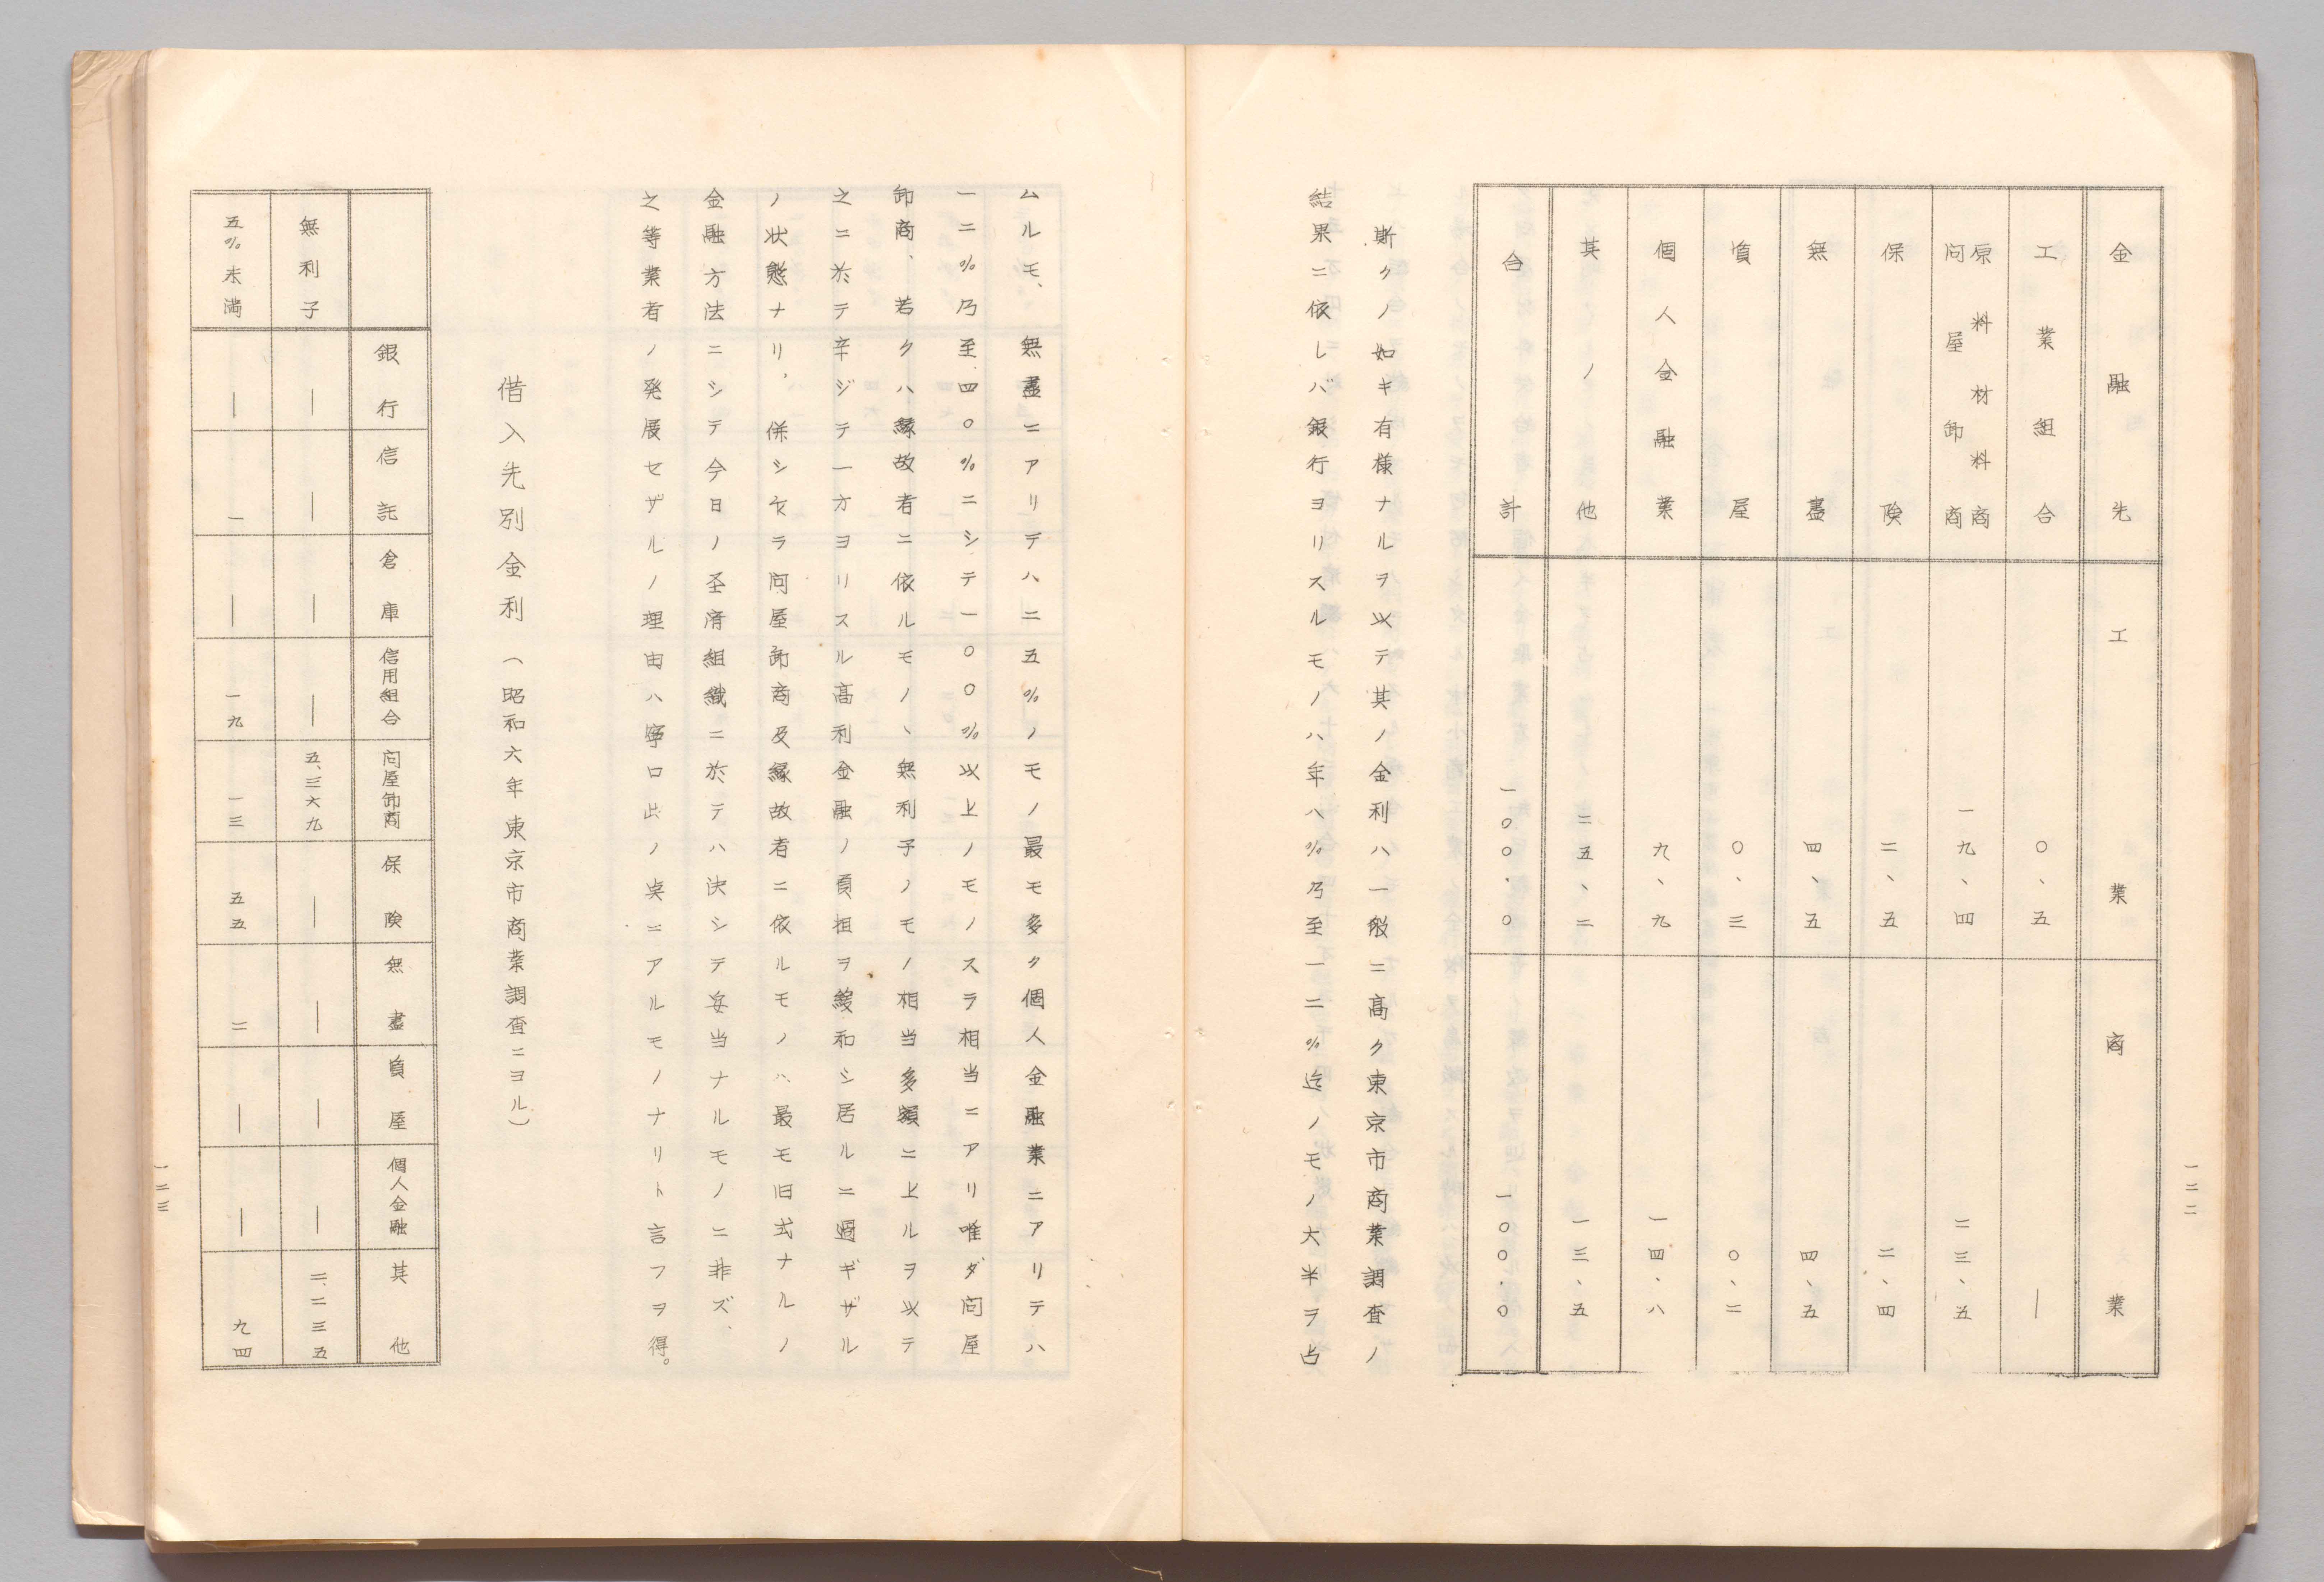 金融先 工業 商業
工業組合 〇、五 ―
原料材料商
問屋卸商 一九、四 二三、五
保険 二、五 二、四
無盡 四、五 四、五
質屋 〇、三 〇、二
個人金融業 九、九 一四、八
其ノ他 二五、二 一三、五
合計 一〇〇.〇 一〇〇.〇
斯クノ如キ有様ナルヲ以テ其ノ金利ハ一般ニ高ク東京市商業調査ノ
結果ニ依レバ銀行ヨリスルモノハ年八%乃至一二%迄ノモノ大半ヲ占
一二二
ムルモ、無盡ニアリテハ二五%ノモノ最モ多ク個人金融業ニアリテハ
一二%乃至四〇%ニシテ一〇〇%以上ノモノスラ相当ニアリ唯ダ問屋
卸商、若クハ縁故者ニ依ルモノヽ無利子ノモノ相当多額ニ上ルヲ以テ
之ニ於テ辛ジテ一方ヨリスル高利金融ノ負担ヲ緩和シ居ルニ過ギザル
ノ状態ナリ、併シ乍ラ問屋卸商及縁故者ニ依ルモノハ、最モ旧式ナルノ
金融方法ニシテ今日ノ圣済組織ニ於テハ決シテ妥当ナルモノニ非ズ、
之等業者ノ発展セザルノ理由ハ寧ロ此ノ点ニアルモノナリト言フヲ得。
借入先別金利(昭和六年東京市商業調査ニヨル)
銀行 信託 倉庫 信用組合 問屋卸商 保険 無盡 質屋 個人金融 其他
無利子 ― ― ― ― 五、三六九 ― ― ― ― 二、二三五
五%未満 ― 一 ― 一九 一三 五五 二 ― ― 九四
一二三